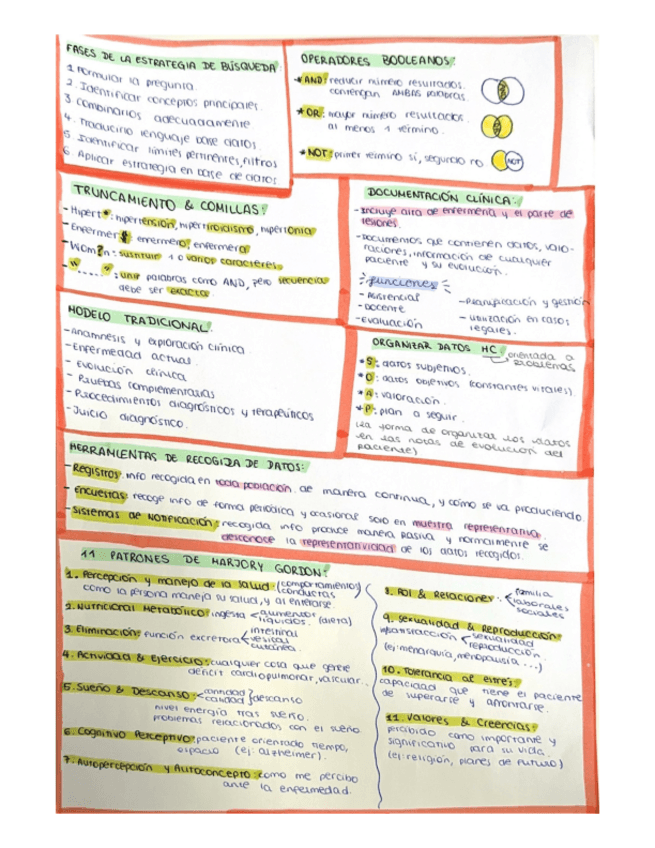 FASES DE LA ESTRATEGIA DE BÚSQUEDA:
1. Formular la pregunta.
2. Identificar conceptos principales.
3. Combinarlos adecuadamente.
4. Traducirlo lenguaje base datos.
5. Identificar límites pertinentes, filtros
6. Aplicar estrategia en base de datos
OPERADORES BOOLEANOS:
* AND: reducir número resultados.
contengan AMBAS palabras.
* OR: mayor número resultados.
al menos 1 término.
* NOT: primer término sí, segundo no
NOT
TRUNCAMIENTO & COMILLAS:
- Hipert*: hipertensión, hipertiroidismo, hipertonia
- Enfermer$: enfermero, enfermera
- Wom?n: sustituir 1 o varios caracteres.
- " ..... ": unir palabras como AND, pero secuencia
debe ser exacta.
DOCUMENTACIÓN CLÍNICA:
- Incluye alta de enfermería y el parte de
lesiones.
- Documentos que contienen datos, valo-
raciones, información de cualquier
paciente y su evolución.
funciones
- Asistencial
- Docente
- Evaluación
- Planificación y gestión
- utilización en casos
legales.
MODELO TRADICIONAL:
- Anamnesis y exploración clínica.
- Enfermedad actual.
- Evolución clínica
- Pruebas complementarias
- Procedimientos diagnósticos y terapéuticos
- Juicio diagnóstico.
ORGANIZAR DATOS HC orientada a
problemas
* S: datos subjetivos.
* O: datos objetivos (constantes vitales).
* A: valoración.
* P: plan a seguir.
(La forma de organizar los datos
en las notas de evolución del
paciente)
HERRAMIENTAS DE RECOGIDA DE DATOS:
- Registros: info recogida en toda población de manera continua, y cómo se va produciendo.
- Encuestas: recoge info de forma periódica y ocasional solo en muestra representativa.
- Sistemas de Notificación: recogida info produce manera pasiva y normalmente se
desconoce la representatividad de los datos recogidos.
11 PATRONES DE MARJORY GORDON:
1. Percepción y manejo de la salud: (comportamientos/
conductas
como la persona maneja su salud, y al enterarse.
2. Nutricional Metabólico: ingesta < alimentos
líquidos. (dieta)
3. Eliminación: función excretora < intestinal
vesical
cutánea.
4. Actividad & Ejercicio: cualquier cosa que genere
déficit cardiopulmonar, vascular.
5. Sueño & Descanso: < cantidad
calidad } descanso
nivel energía tras sueño.
problemas relacionados con el sueño.
6. Cognitivo Perceptivo: paciente orientado tiempo,
espacio (ej: alzheimer).
7. Autopercepción y Autoconcepto: cómo me percibo
ante la enfermedad.
8. Rol & Relaciones: < familia
laborales
sociales
9. Sexualidad & Reproducción:
satisfacción < sexualidad
reproducción.
(ej: menarquia, menopausia ...)
10. Tolerancia al estrés:
capacidad que tiene el paciente
de superarse y afrontarse.
11. Valores & Creencias:
percibido como importante y
significativo para su vida.
(ej: religión, planes de futuro)